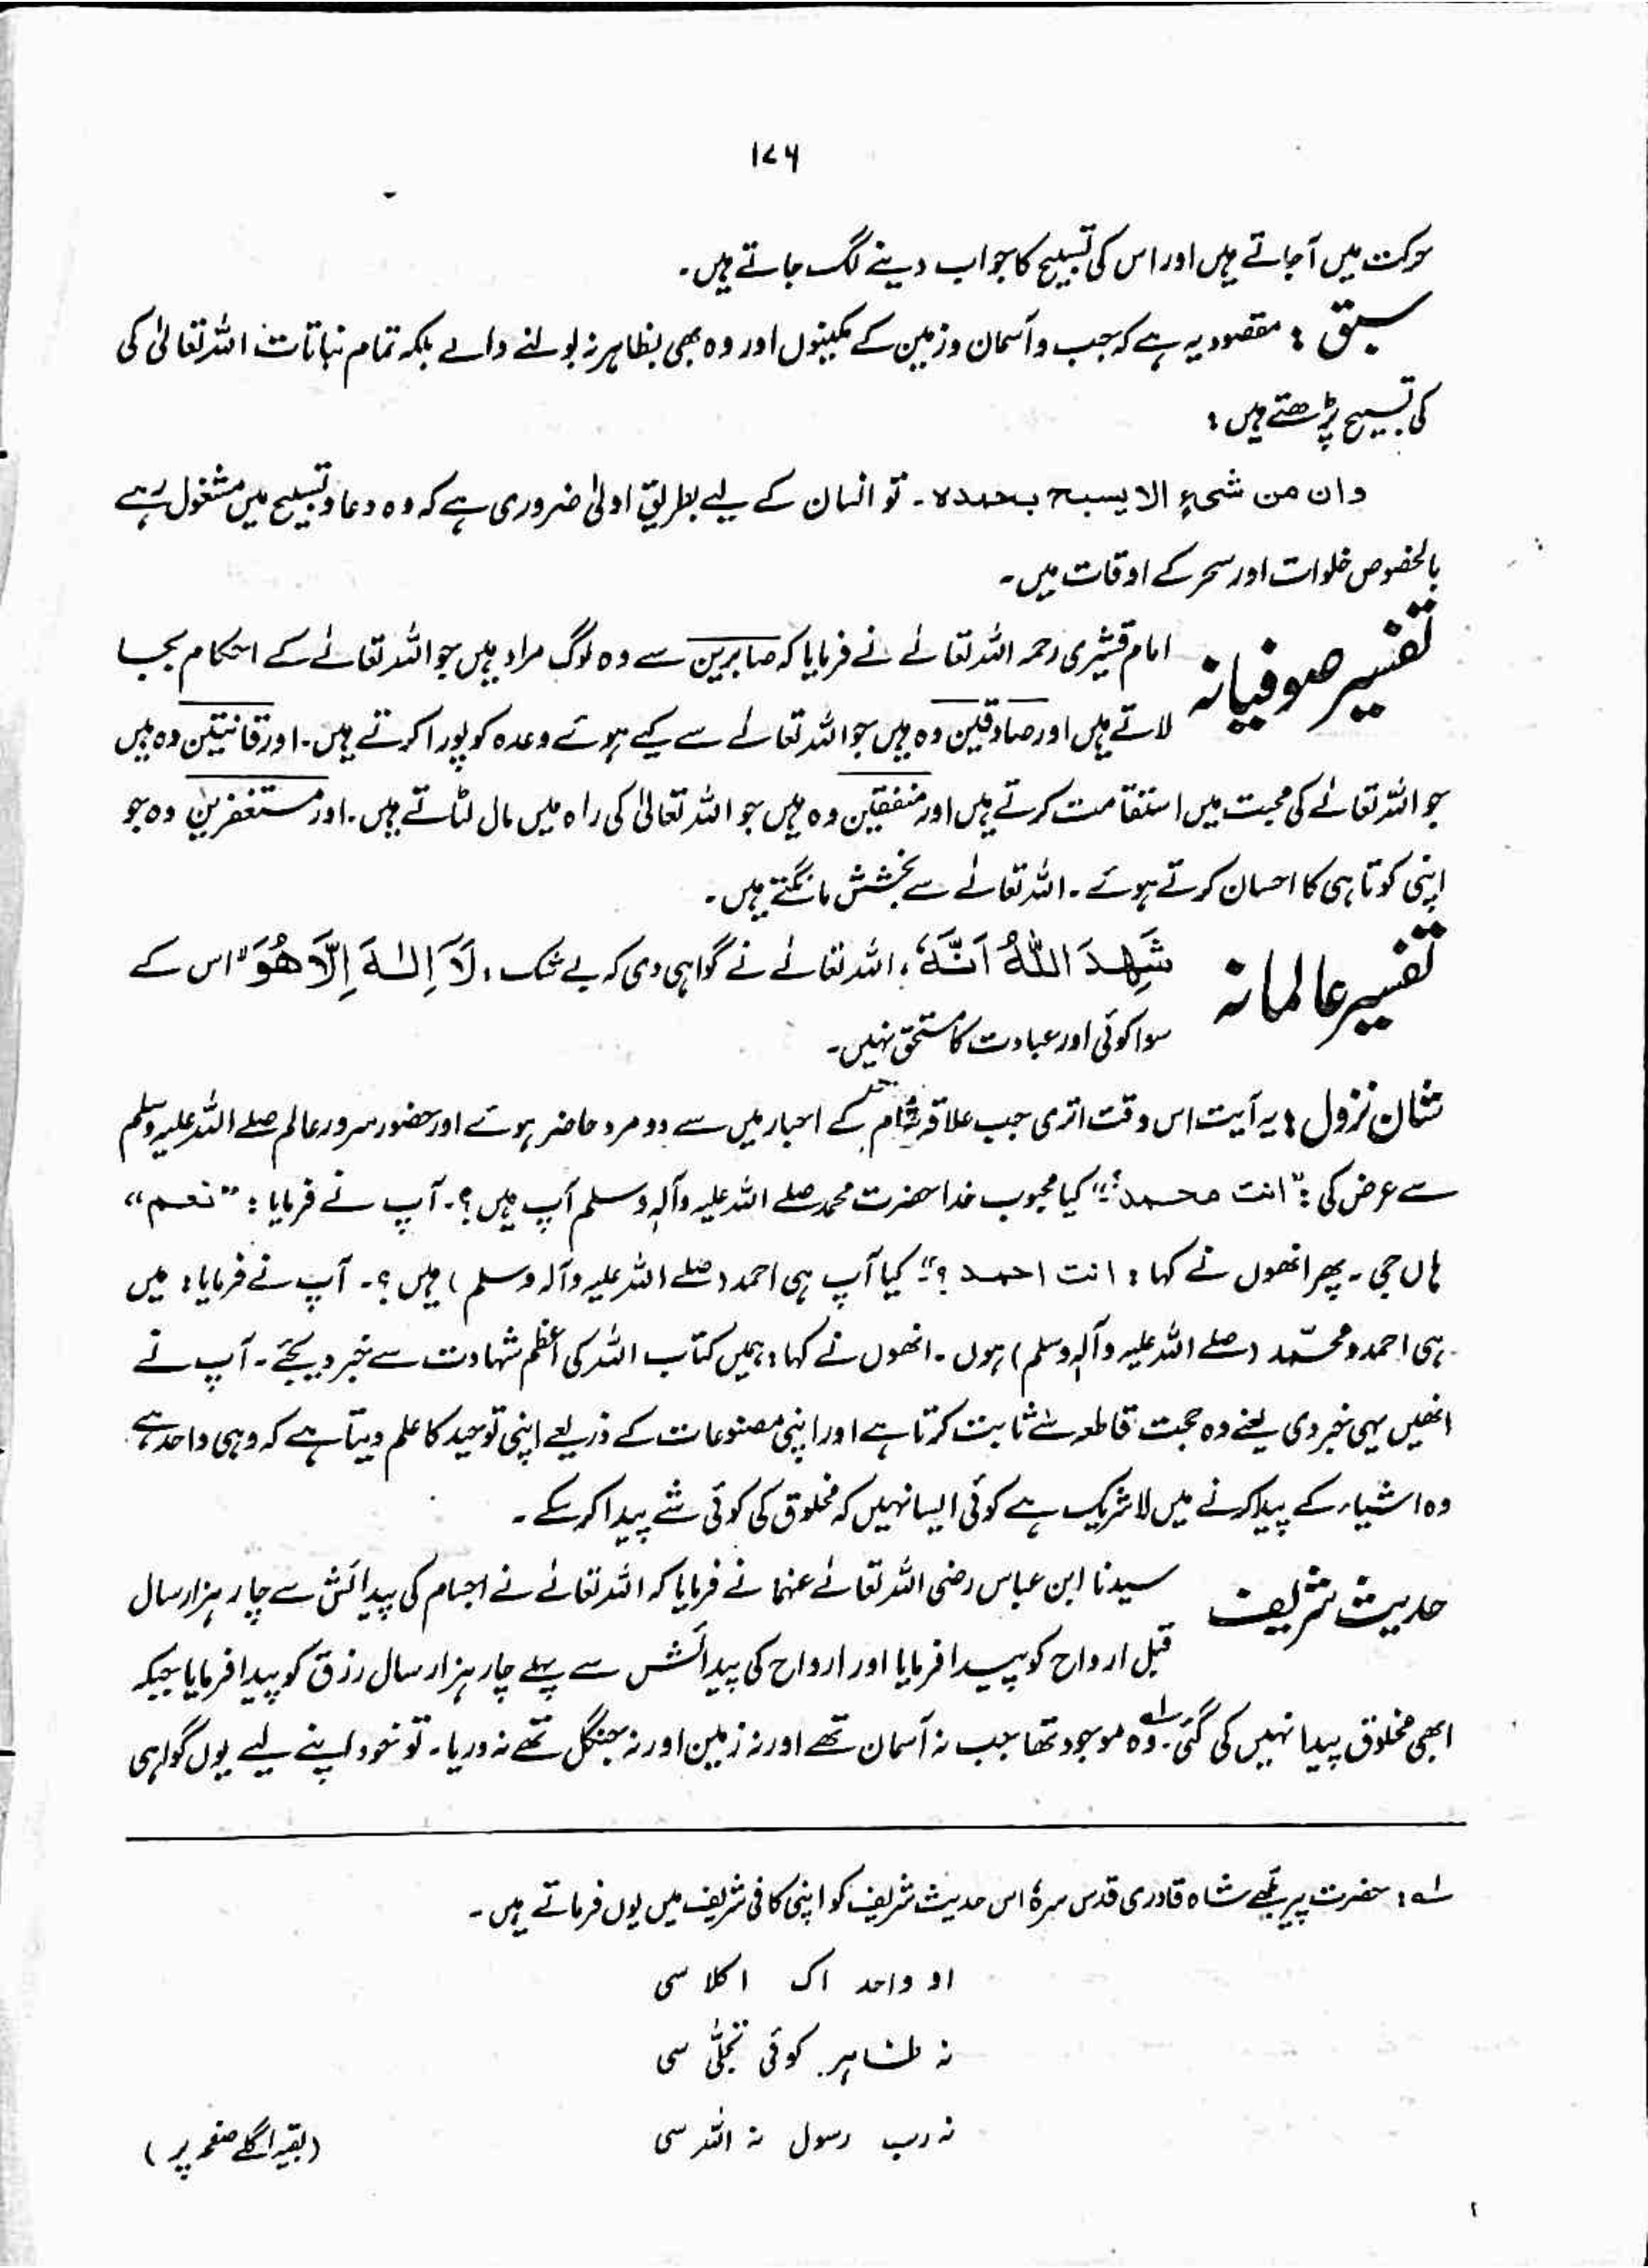 ۱۷۶
حرکت میں آجاتے ہیں اور اس کی تسبیح کا جواب دینے لگ جاتے ہیں۔
سبق : مقصود یہ ہے کہ جب و آسمان و زمین کے مکینوں اور وہ بھی بظاہر نہ بولنے والے بلکہ تمام نباتات اللہ تعالیٰ کی
کی تسبیح پڑھتے ہیں :
وان من شیءٍ الا یسبح بحمدہ۔ تو انسان کے لیے بطریق اولیٰ ضروری ہے کہ وہ دعا و تسبیح میں مشغول رہے
بالخصوص خلوات اور سحر کے اوقات میں۔
تفسیر صوفیانہ امام قشیری رحمہ اللہ تعالےٰ نے فرمایا کہ صابرین سے وہ لوگ مراد ہیں جو اللہ تعالےٰ کے احکام بجا
لاتے ہیں اور صادقین وہ ہیں جو اللہ تعالےٰ سے کیے ہوئے وعدہ کو پورا کرتے ہیں۔ اور قانتین وہ ہیں
جو اللہ تعالےٰ کی محبت میں استقامت کرتے ہیں اور منفقین وہ ہیں جو اللہ تعالیٰ کی راہ میں مال لٹاتے ہیں۔ اور مستغفرین وہ جو
اپنی کوتاہی کا احسان کرتے ہوئے۔ اللہ تعالےٰ سے بخشش مانگتے ہیں۔
تفسیر عالمانہ شَهِدَ اللّٰهُ اَنَّهٗ ، اللہ تعالےٰ نے گواہی دی کہ بے شک ، لَآ اِلٰهَ اِلَّا هُوَ اس کے
سوا کوئی اور عبادت کا مستحق نہیں۔
شان نزول : یہ آیت اس وقت اتری جب علاقہ شام کے احبار میں سے دو مرد حاضر ہوئے اور حضور سرور عالم صلے اللہ علیہ وسلم
سے عرض کی : "انت محمد؟" کیا محبوب خدا حضرت محمد صلے اللہ علیہ وآلہٖ وسلم آپ ہیں ؟۔ آپ نے فرمایا : "نعم"
ہاں جی۔ پھر انھوں نے کہا : انت احمد ؟" کیا آپ ہی احمد (صلے اللہ علیہ وآلہ وسلم) ہیں ؟۔ آپ نے فرمایا : میں
ہی احمد و محمّد (صلے اللہ علیہ وآلہٖ وسلم) ہوں۔ انھوں نے کہا : ہمیں کتاب اللہ کی اعظم شہادت سے خبر دیجئے۔ آپ نے
انھیں یہی خبر دی یعنے وہ حجت قاطعہ سے ثابت کرتا ہے اور اپنی مصنوعات کے ذریعے اپنی توحید کا علم دیتا ہے کہ وہی واحد ہے
وہ اشیاء کے پیدا کرنے میں لا شریک ہے کوئی ایسا نہیں کہ مخلوق کی کوئی شے پیدا کر سکے۔
حدیث شریف سیدنا ابن عباس رضی اللہ تعالےٰ عنہما نے فرمایا کہ اللہ تعالےٰ نے اجسام کی پیدائش سے چار ہزار سال
قبل ارواح کو پیدا فرمایا اور ارواح کی پیدائش سے پہلے چار ہزار سال رزق کو پیدا فرمایا جبکہ
ابھی مخلوق پیدا نہیں کی گئی۔ ۱ـہ وہ موجود تھا جب نہ آسمان تھے اور نہ زمین اور نہ جنگل تھے نہ دریا۔ تو خود اپنے لیے یوں گواہی
۱ـہ : حضرت پیر بلھے شاہ قادری قدس سرہٗ اس حدیث شریف کو اپنی کافی شریف میں یوں فرماتے ہیں۔
او واحد اک اکلا سی
نہ ظاہر کوئی تجلّٰی سی
نہ رب رسول نہ اللہ سی
(بقیہ اگلے صفحہ پر)